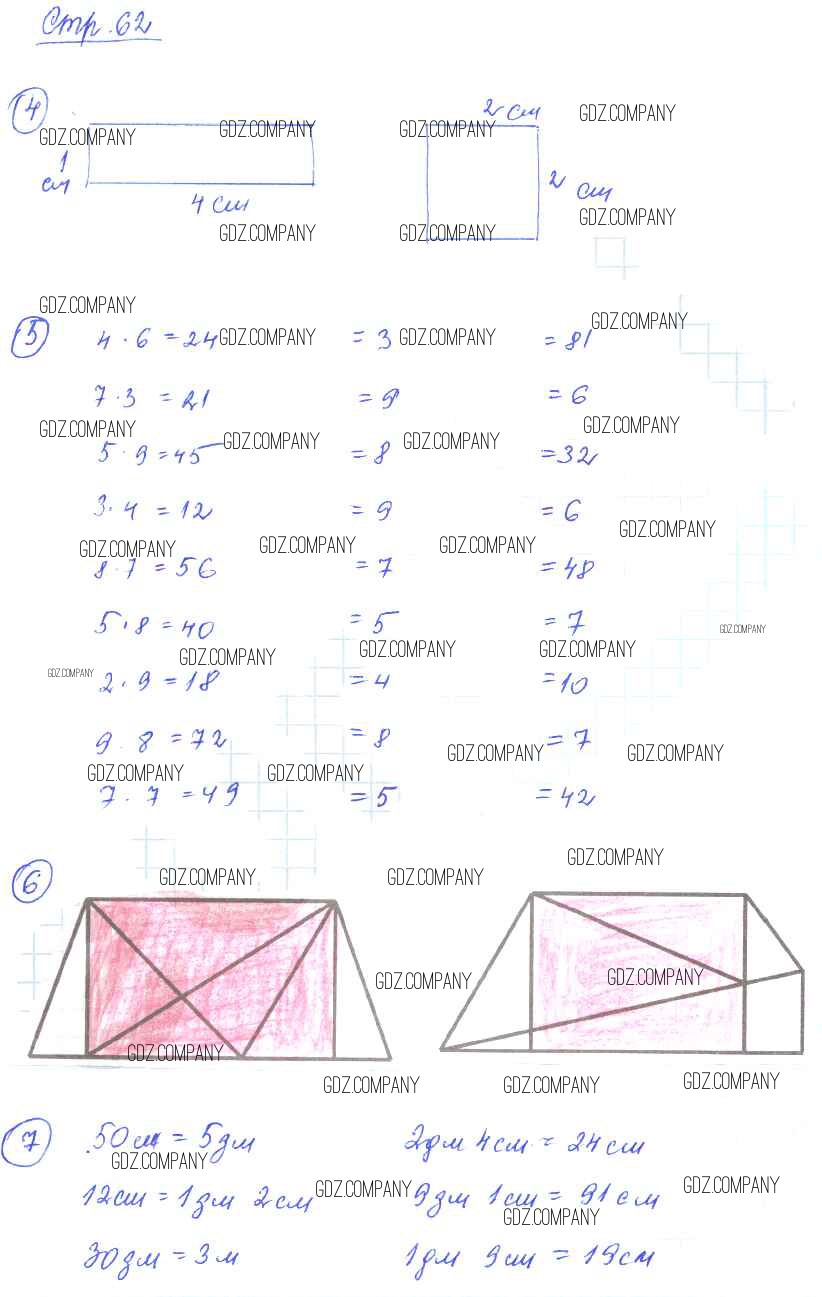 Стр. 62
4
2 см
GDZ.COMPANY
GDZ.COMPANY GDZ.COMPANY GDZ.COMPANY
1 см
2 см
4 см
GDZ.COMPANY GDZ.COMPANY GDZ.COMPANY
GDZ.COMPANY
5
4 · 6 = 24 GDZ.COMPANY = 3 GDZ.COMPANY = 81 GDZ.COMPANY
7 · 3 = 21 = 9 = 6
GDZ.COMPANY GDZ.COMPANY GDZ.COMPANY GDZ.COMPANY
5 · 9 = 45 = 8 = 32
3 · 4 = 12 = 9 = 6
GDZ.COMPANY GDZ.COMPANY GDZ.COMPANY GDZ.COMPANY
8 · 7 = 56 = 7 = 48
5 · 8 = 40 = 5 = 7
GDZ.COMPANY
GDZ.COMPANY GDZ.COMPANY GDZ.COMPANY GDZ.COMPANY
2 · 9 = 18 = 4 = 10
9 · 8 = 72 = 8 = 7
GDZ.COMPANY GDZ.COMPANY GDZ.COMPANY GDZ.COMPANY
7 · 7 = 49 = 5 = 42
6
GDZ.COMPANY GDZ.COMPANY GDZ.COMPANY
GDZ.COMPANY GDZ.COMPANY
GDZ.COMPANY
GDZ.COMPANY GDZ.COMPANY GDZ.COMPANY
7
50 см = 5 дм 2 дм 4 см = 24 см
GDZ.COMPANY
12 см = 1 дм 2 см GDZ.COMPANY 9 дм 1 см = 91 см GDZ.COMPANY
GDZ.COMPANY
30 дм = 3 м 1 дм 9 см = 19 см